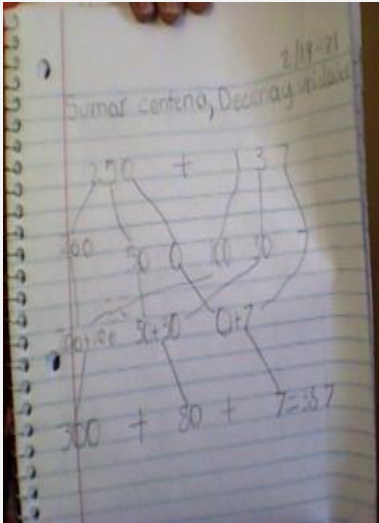 2/19-21
Sumar centena, Decena y unidad
250 + 137
200 50 0 100 30 7
200+100 50+30 0+7
300 + 80 + 7=387